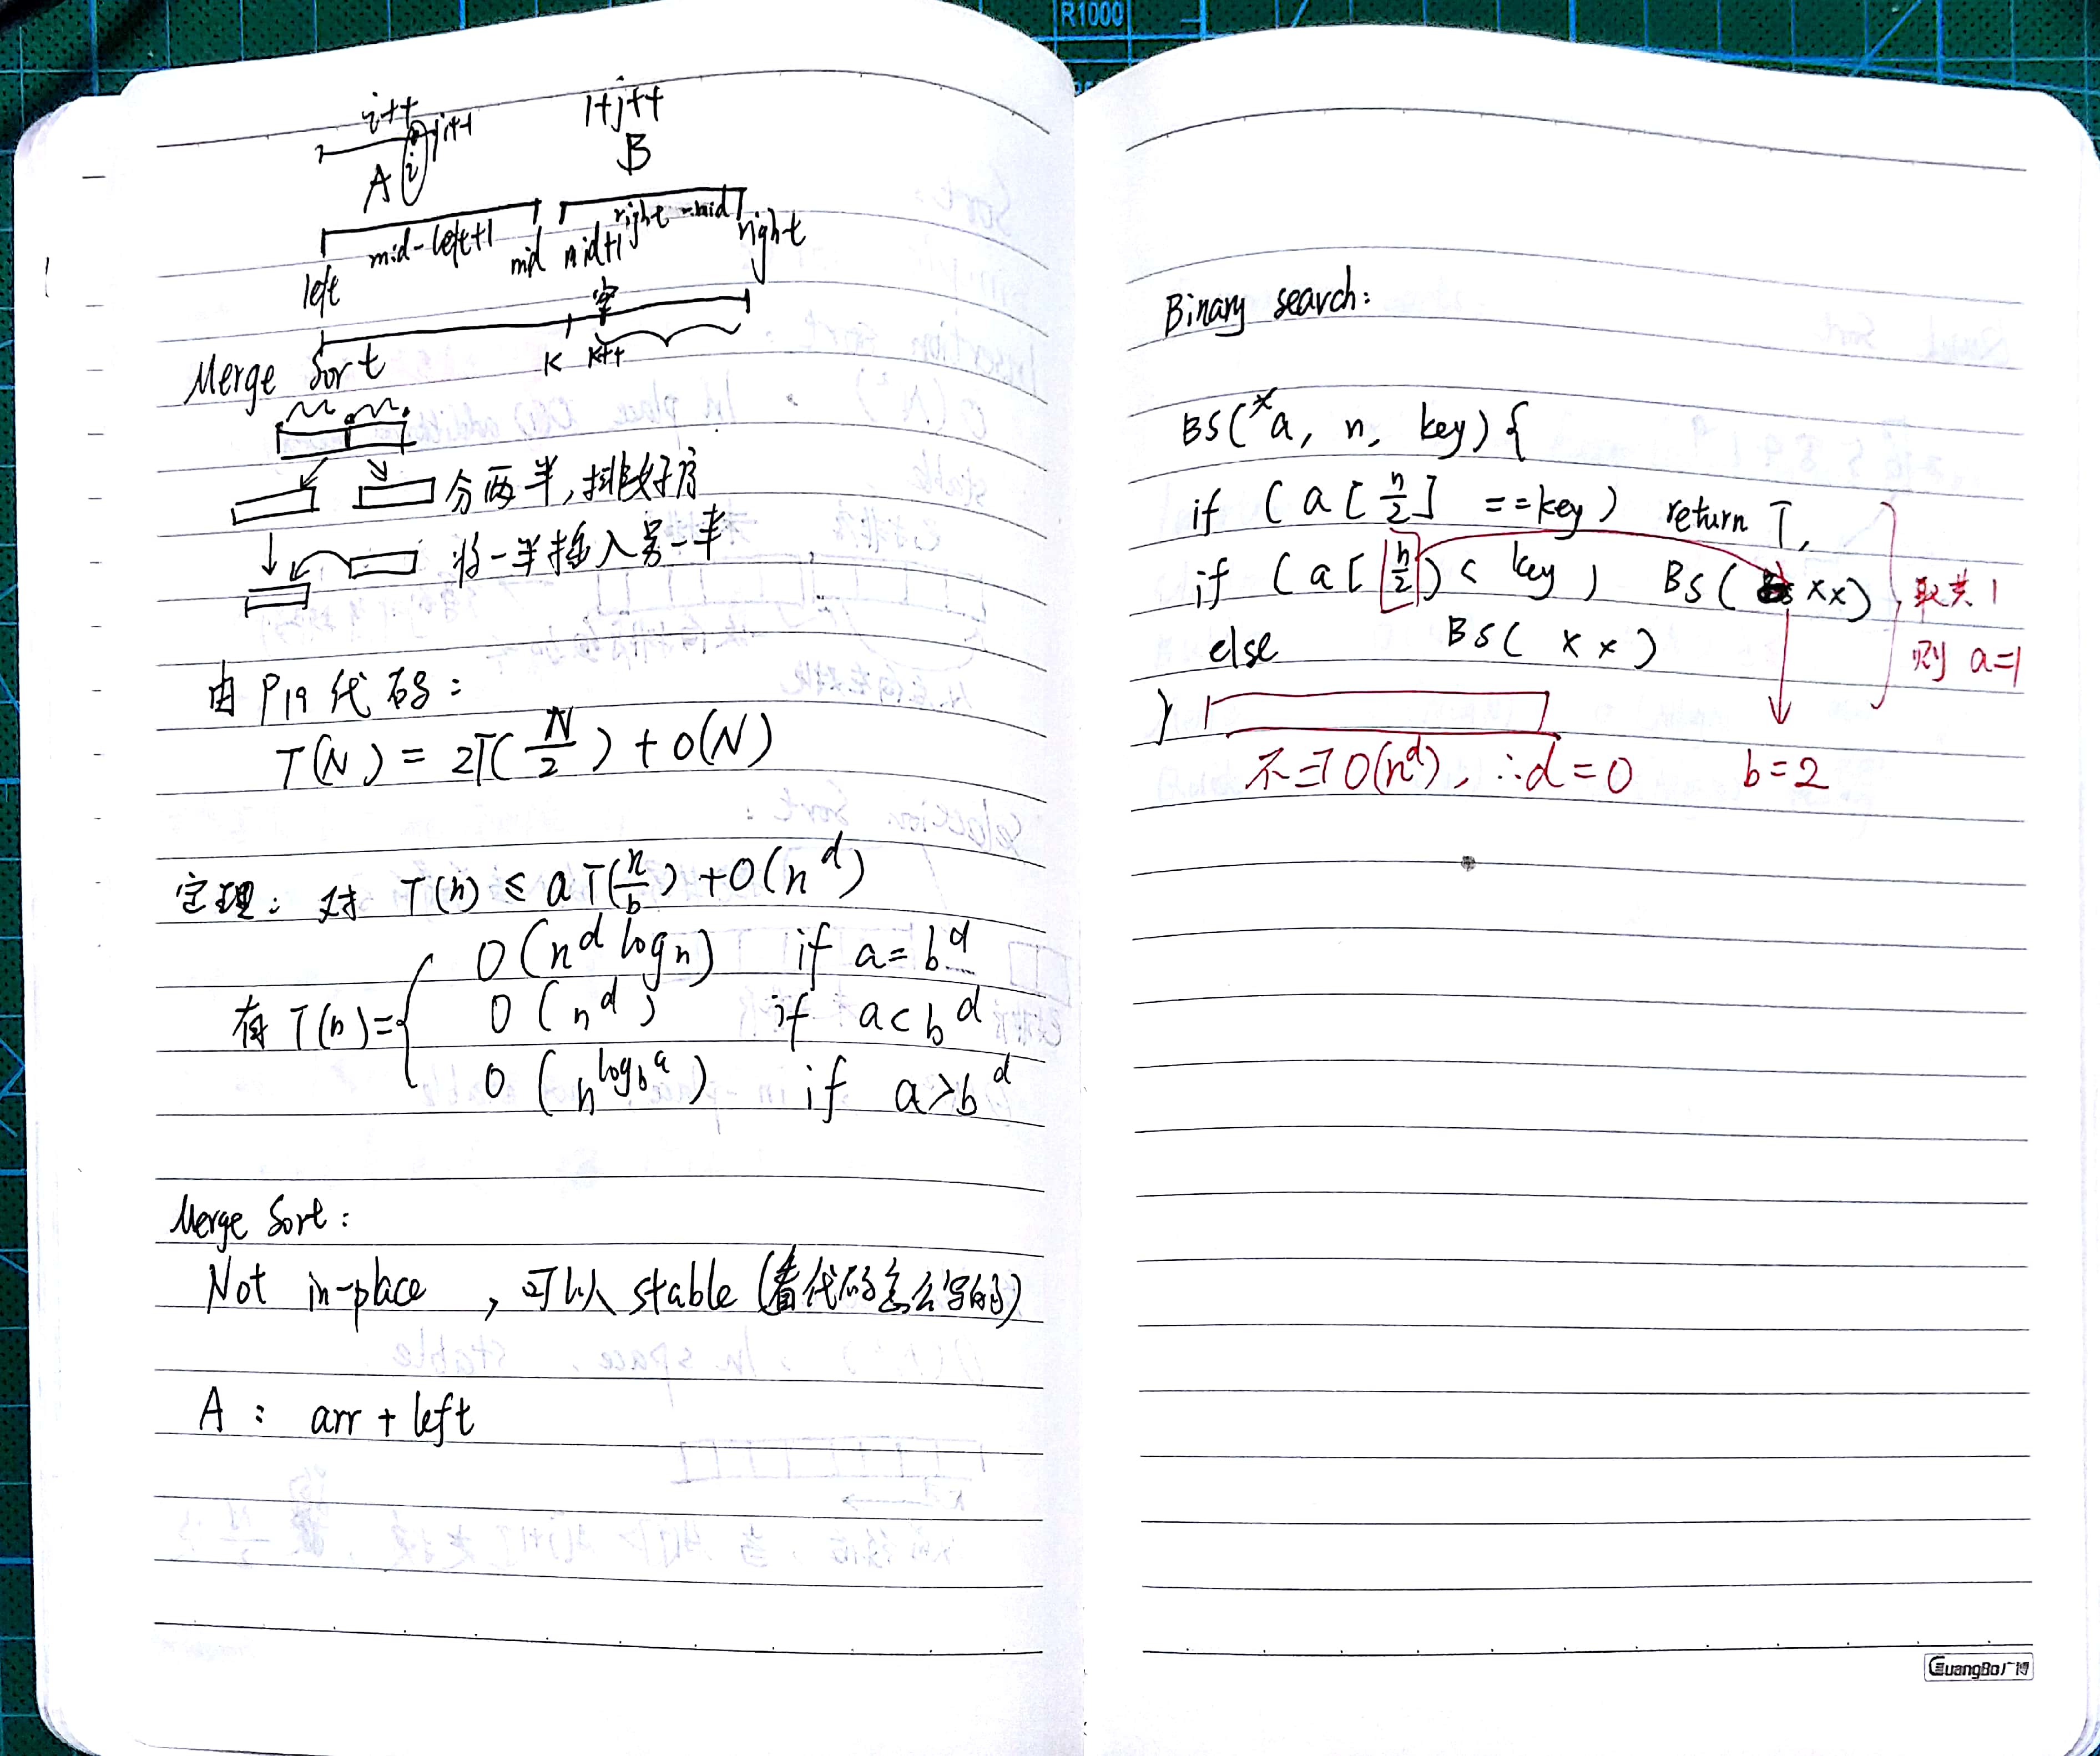 R1000
i++ j++
A i
B
left mid-left+1 mid mid+1 right-mid right
空
K K++
Merge Sort
分两半,排好序
将一半插入另一半
由P19代码:
T(N) = 2T(N/2) + O(N)
定理: 对 T(n) ≤ aT(n/b) + O(n^d)
有 T(n) = {
O(n^d log n) if a = b^d
O(n^d) if a < b^d
O(n^{log_b a}) if a > b^d
Merge Sort:
Not in-place , 可以 stable (看代码怎么写的)
A: arr + left
Binary search:
BS(*a, n, key) {
if (a[n/2] == key) return T,
if (a[n/2) < key) BS( xx)
else BS( x x )
}
取其1
则 a=1
O(n^d), ∴d=0 b=2
GuangBo广博